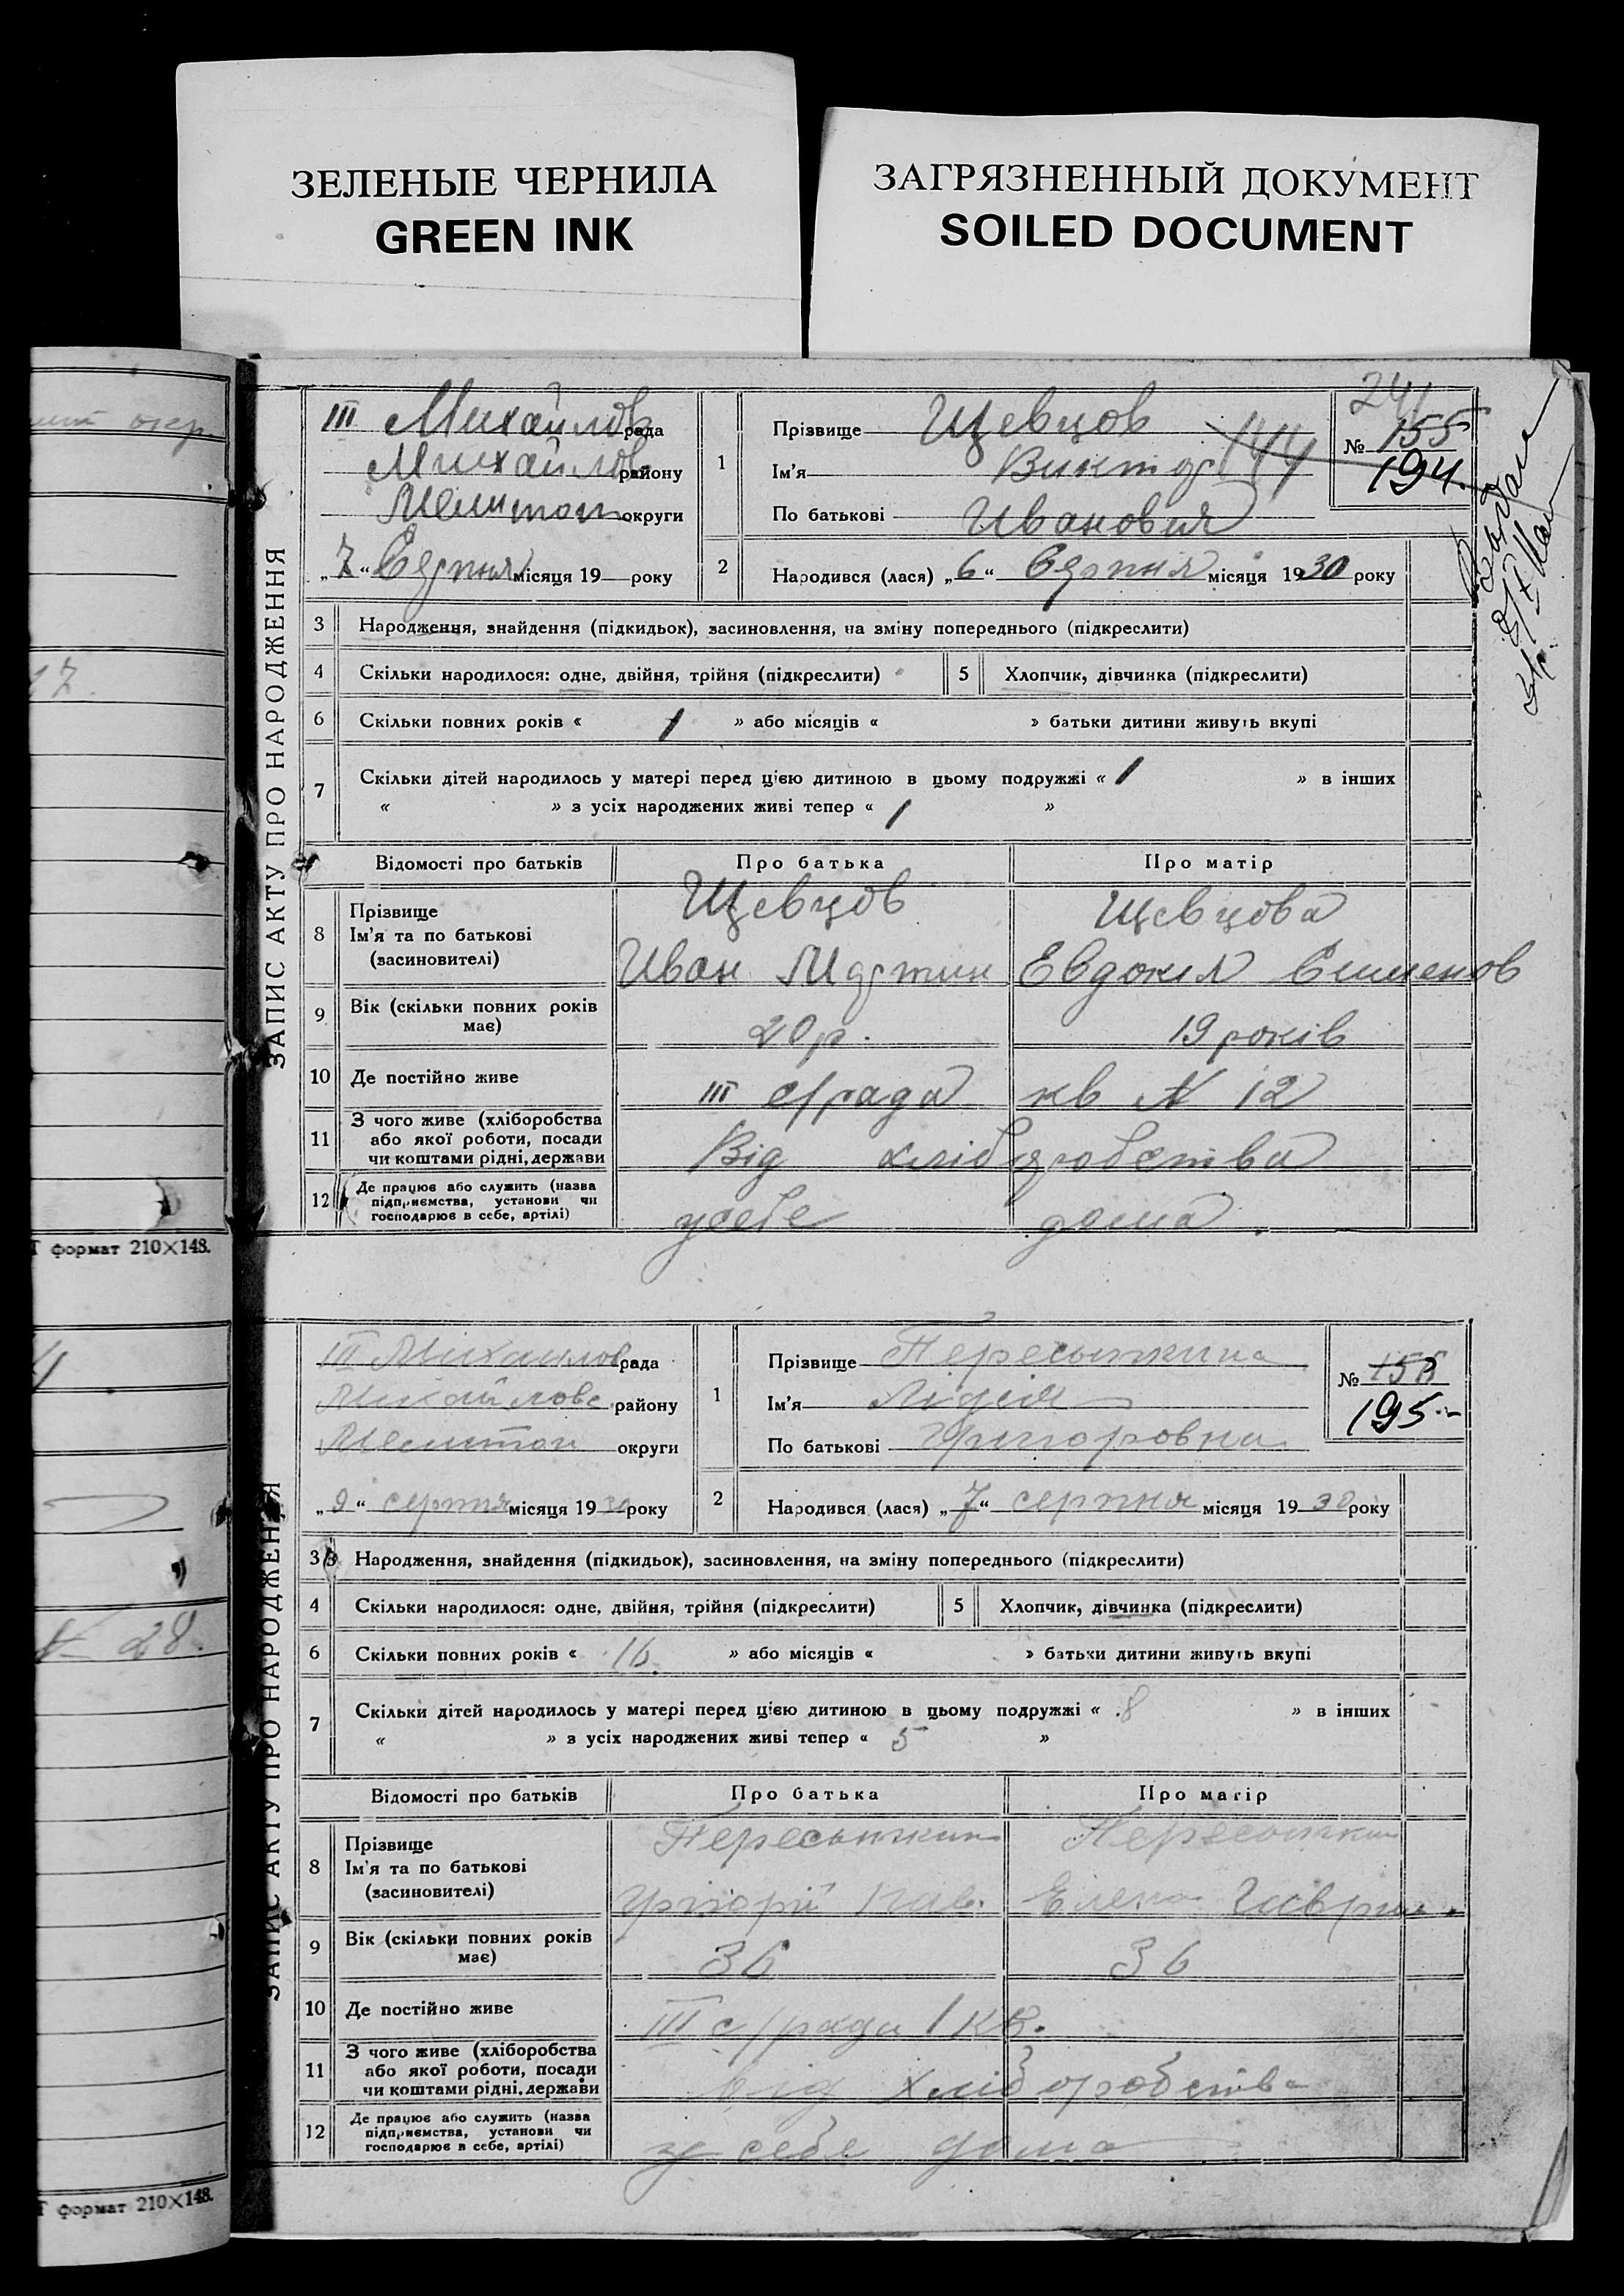 ЗЕЛЕНЫЕ ЧЕРНИЛА
GREEN INK
ЗАГРЯЗНЕННЫЙ ДОКУМЕНТ
SOILED DOCUMENT
17.
Т формат 210×148.
№ 28.
Т формат 210×148.
ЗАПИС АКТУ ПРО НАРОДЖЕННЯ
III Михайлов рада
Михайлов району
Мелитоп округи
„7“ Серпня місяця 19 року
1
Прізвище Щевцов
Ім’я Виктор 144
По батькові Иванович
241
№ 155
194.
2 Народився (лася) „6“ Серпня місяця 1930 року
3 Народження, знайдення (підкидьок), засиновлення, на зміну попереднього (підкреслити)
4 Скільки народилося: одне, двійня, трійня (підкреслити) 5 Хлопчик, дівчинка (підкреслити)
6 Скільки повних років « 1 » або місяців « » батьки дитини живуть вкупі
7 Скільки дітей народилось у матері перед цією дитиною в цьому подружжі « 1 » в інших
« » з усіх народжених живі тепер « 1 »
Відомості про батьків Про батька Про матір
8 Прізвище
Ім’я та по батькові
(засиновителі)
Щевцов Щевцова
Иван Мартин Евдокия Семенов
9 Вік (скільки повних років має) 20 р. 19 років
10 Де постійно живе III с/рада кв № 12
11 З чого живе (хліборобства або якої роботи, посади чи коштами рідні, держави Від хліборобства
12 Де працює або служить (назва підприємства, установи чи господарює в себе, артілі) у себе дома.
ЗАПИС АКТУ ПРО НАРОДЖЕННЯ
III Михаилов рада
Михайловс району
Мелитоп округи
„9“ серпня місяця 1930 року
1
Прізвище Пересыпкина
Ім’я Лідія
По батькові Григоровна
№
195.-
2 Народився (лася) „7“ серпня місяця 1930 року
3 Народження, знайдення (підкидьок), засиновлення, на зміну попереднього (підкреслити)
4 Скільки народилося: одне, двійня, трійня (підкреслити) 5 Хлопчик, дівчинка (підкреслити)
6 Скільки повних років « 16. » або місяців « » батьки дитини живуть вкупі
7 Скільки дітей народилось у матері перед цією дитиною в цьому подружжі « 8 » в інших
« » з усіх народжених живі тепер « 5 »
Відомості про батьків Про батька Про матір
8 Прізвище
Ім’я та по батькові
(засиновителі)
Пересыпкин Пересыпкин
Григорій Пав. Елена Гаврил.
9 Вік (скільки повних років має) 36 36
10 Де постійно живе III с/рада 1 кв.
11 З чого живе (хліборобства або якої роботи, посади чи коштами рідні, держави від хліборобства
12 Де працює або служить (назва підприємства, установи чи господарює в себе, артілі) у себе дома